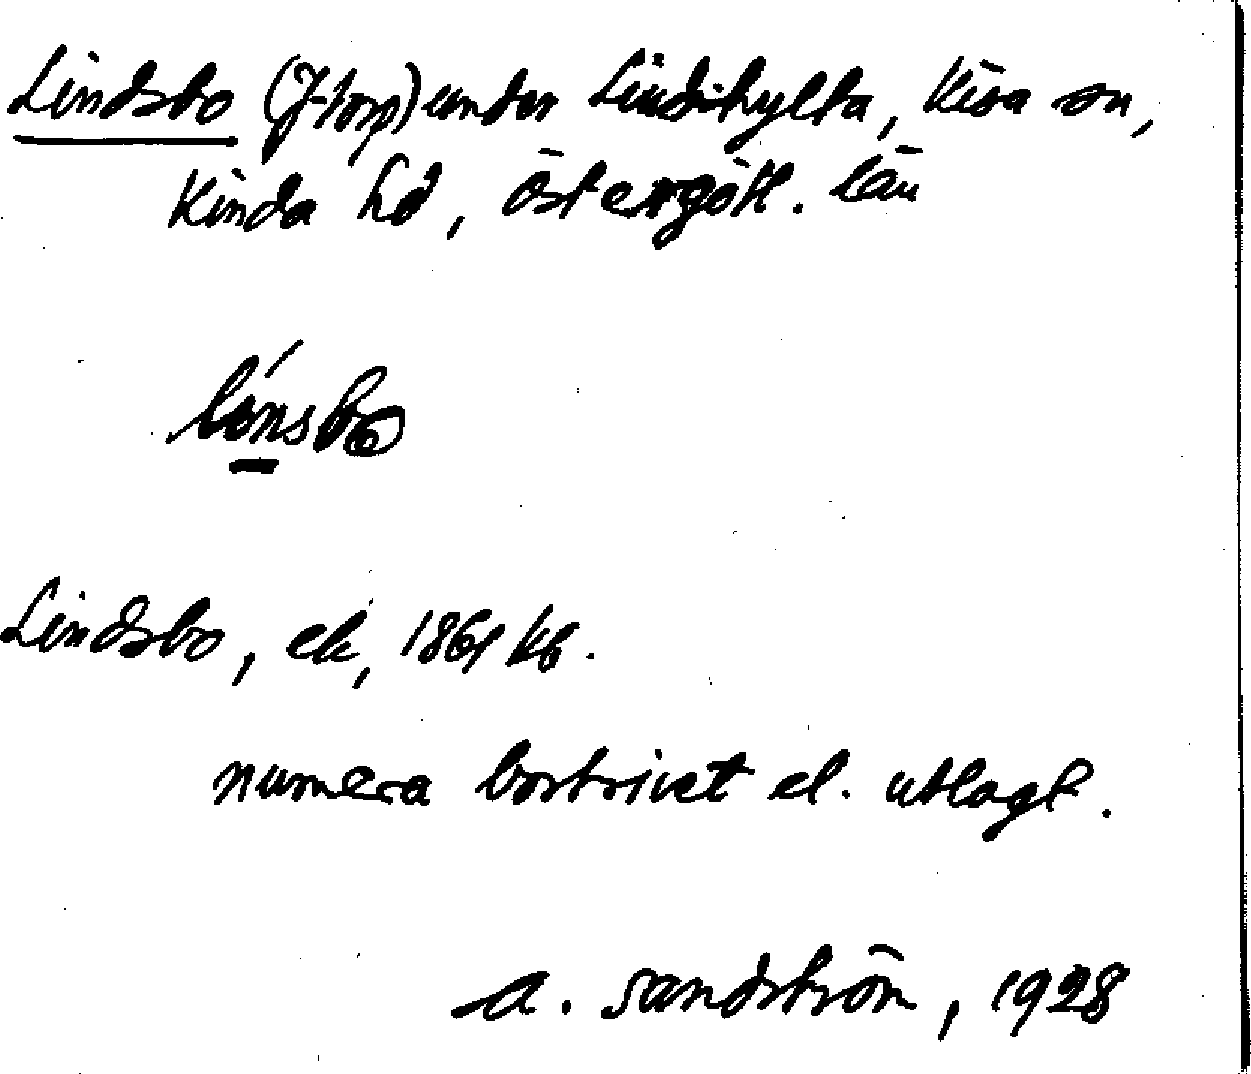 Lindsbo (f. torp) under Lindshylta, Kisa sn,
Kinda hd, Östergötl. län
linsbo
Lindsbo, ek, 1861 kb.
numera bortrivet el. utlagt.
A. Sandström, 1928